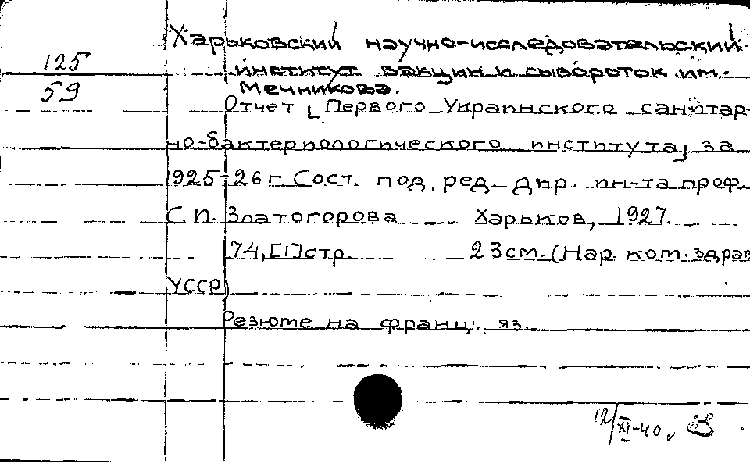 Харьковский научно-исследовательский
125
институт вакцин и сывороток им.
59
Мечникова.
Отчет [Первого Украинского санитар-
но-бактериологического института] за
1925-26 г. Сост. под. ред. дир. ин-та проф.
С.П. Златогорова Харьков, 1927.
74, [1] стр. 23 см. (Нар. ком. здрав
УССР)
Резюме на франц. яз.
12/XI-40.